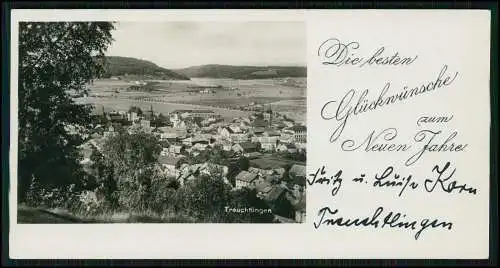 Die besten
Glückwünsche
zum
Neuen Jahre
Fritz u. Luise Korn
Treuchtlingen
Treuchtlingen